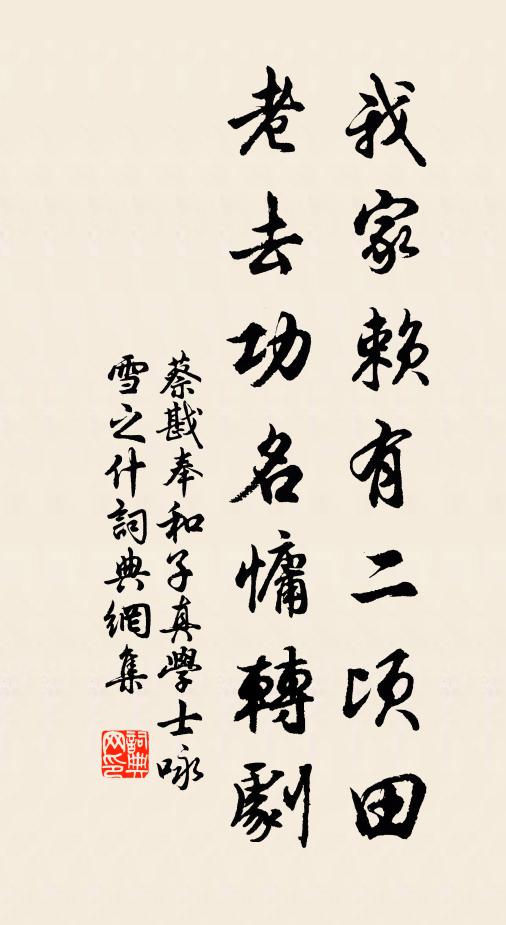 我家賴有二頃田
老去功名慵轉劇
蔡戡奉和子真學士咏
雪之什詞典網集
詞典
网印